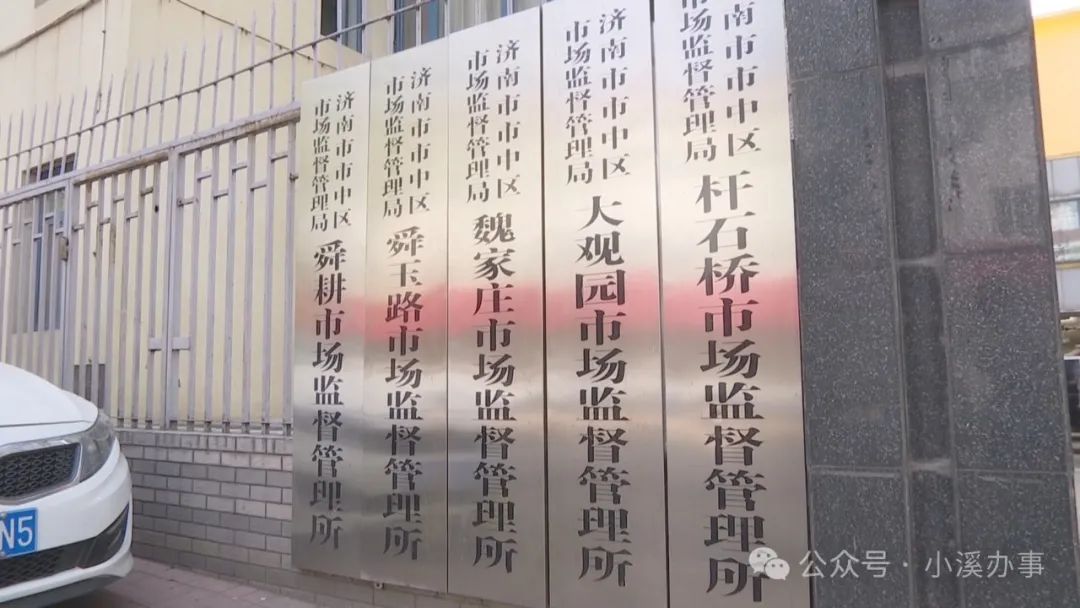 济南市市中区
市场监督管理局
舜耕市场监督管理所
济南市市中区
市场监督管理局
舜玉路市场监督管理所
济南市市中区
市场监督管理局
魏家庄市场监督管理所
济南市市中区
市场监督管理局
大观园市场监督管理所
南市市中区
市场监督管理局
杆石桥市场监督管理所
N5
公众号·小溪办事